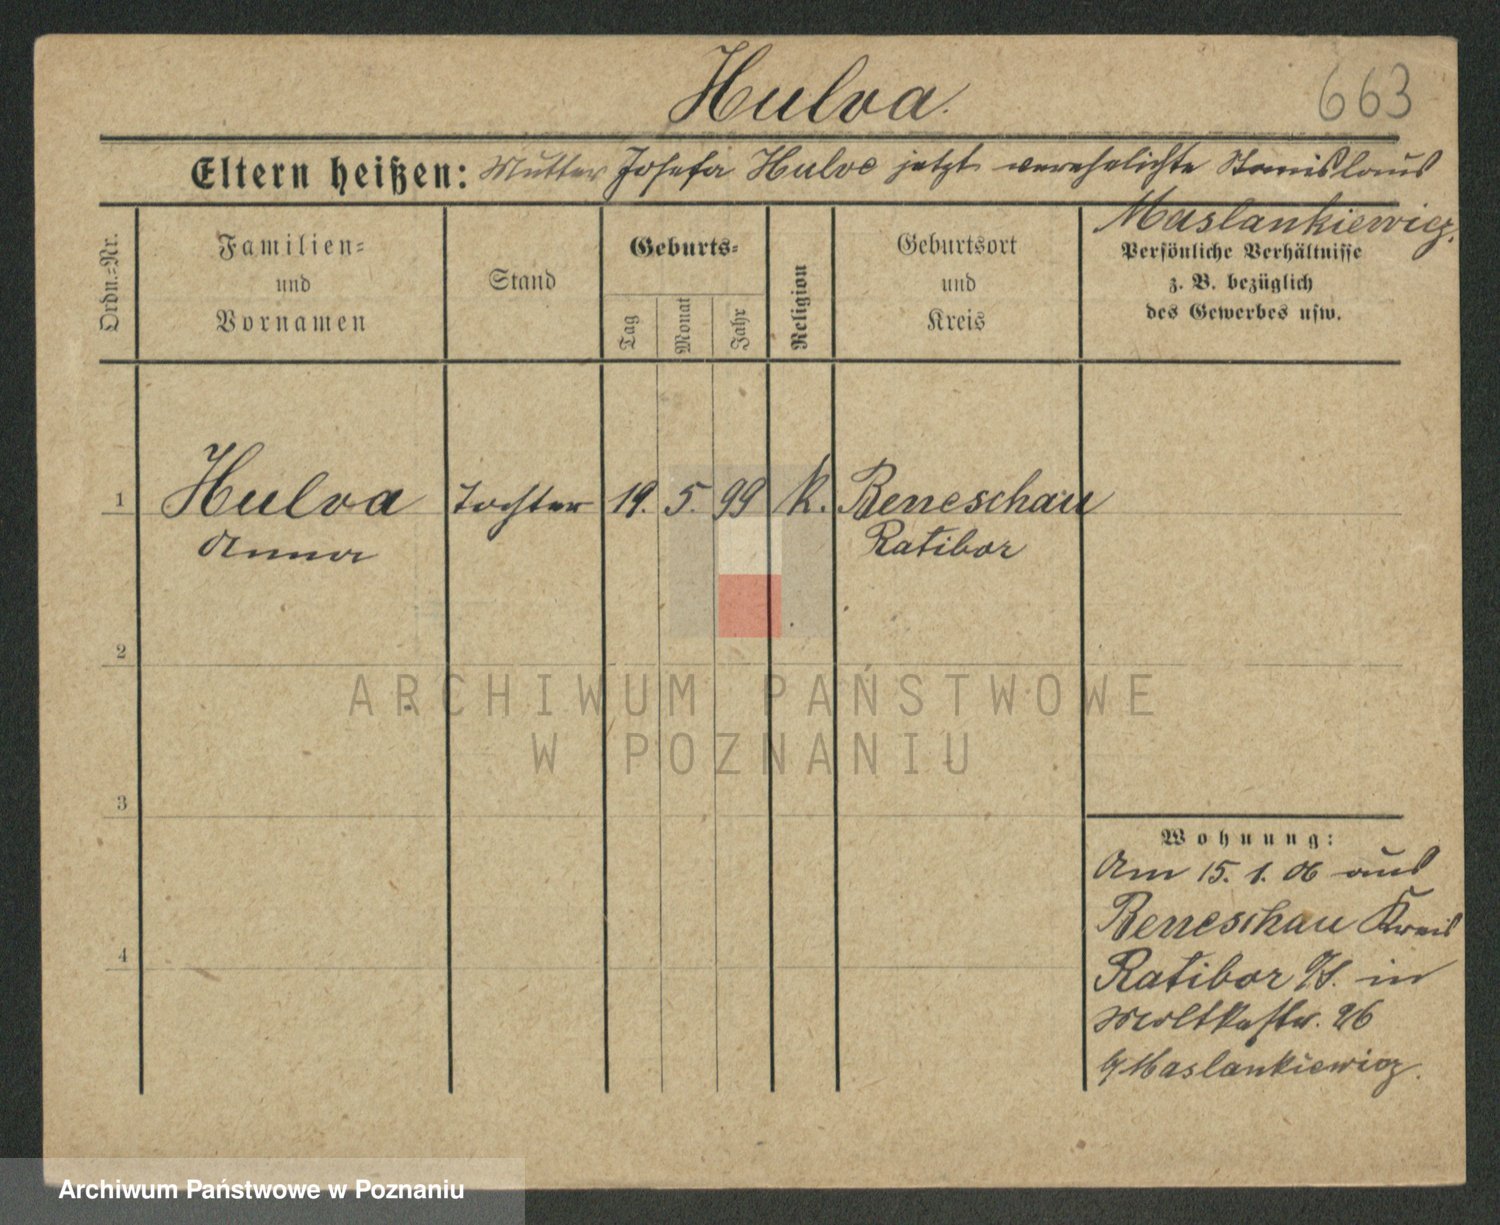 Hulva.
663
Eltern heißen: Mutter Josefa Hulve jetzt verehelichte Stanislaus
Maslankiewicz.
Ordn.=Nr.
Familien=
und
Vornamen
Stand
Geburts=
Tag
Monat
Jahr
Religion
Geburtsort
und
Kreis
Persönliche Verhältnisse
z. B. bezüglich
des Gewerbes usw.
1 Hulva Tochter 19. 5. 99 k. Beneschau
Anna Ratibor
2
3
4
Wohnung:
Am 15. 1. 06 aus
Beneschau Kreis
Ratibor O/S. in
Moltkestr. 26
b/Maslankiewicz.
ARCHIWUM PAŃSTWOWE
W POZNANIU
Archiwum Państwowe w Poznaniu